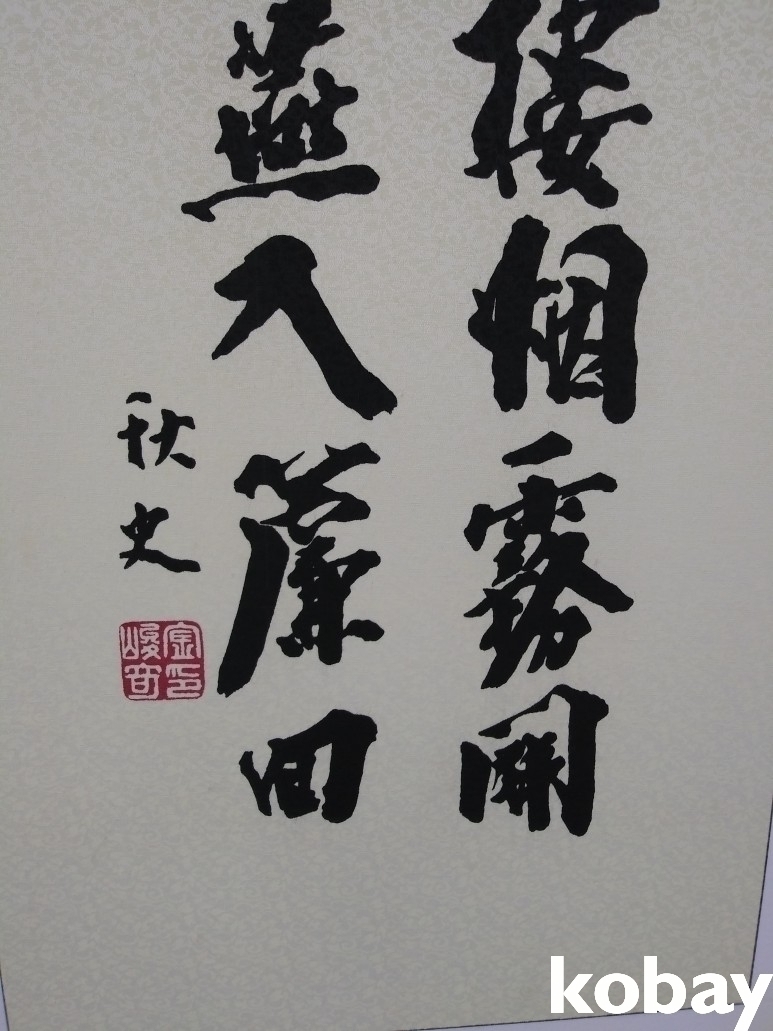 烟霧開
燕入簾回
秋史
kobay